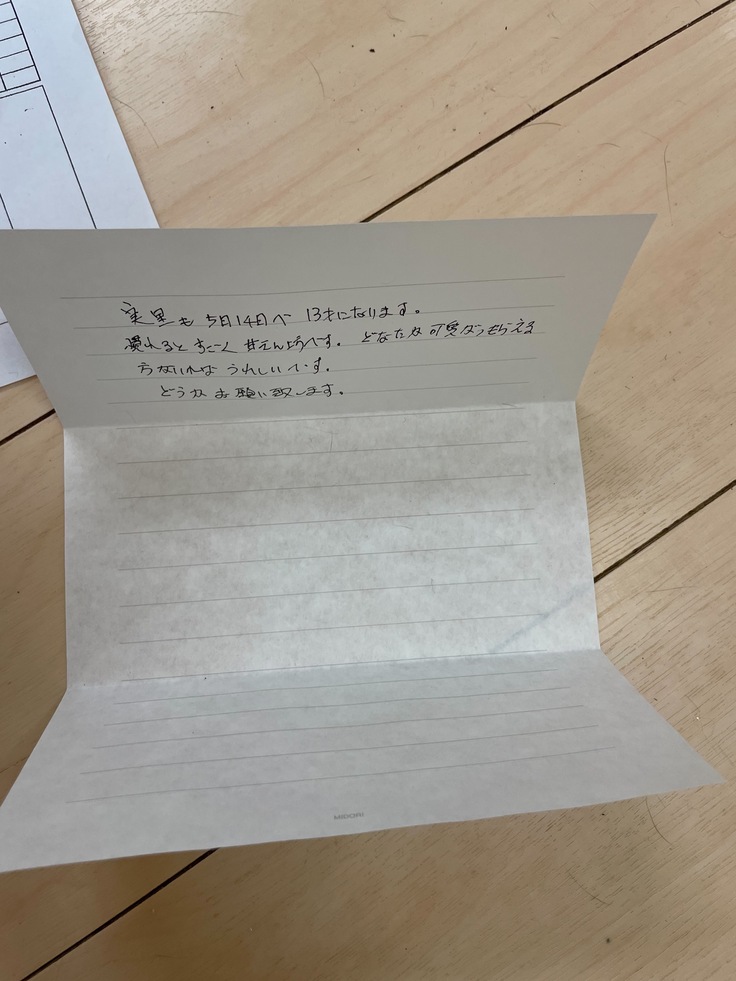 実里も 5日14日で 13才になります。
慣れると すごく 甘えんぼうです。 どなたか 可愛がってもらえる
方ないかな うれしいです。
どうか お願い致します。
MIDORI